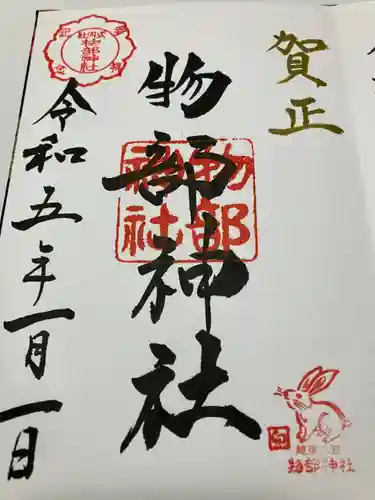 賀正
物部神社
物部神社
令和五年一月一日
物部神社
物部神社